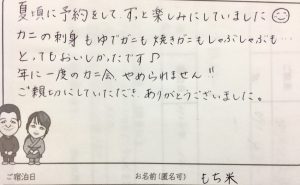 夏頃に予約をして、ずっと楽しみにしていました
カニの刺身もゆでガニも焼きがニもしゃぶしゃぶも…
とってもおいしかったです♪
年に一度のカニ会、やめられません!!
ご親切にしていただき、ありがとうございました。
ご宿泊日 お名前(匿名可) もち米